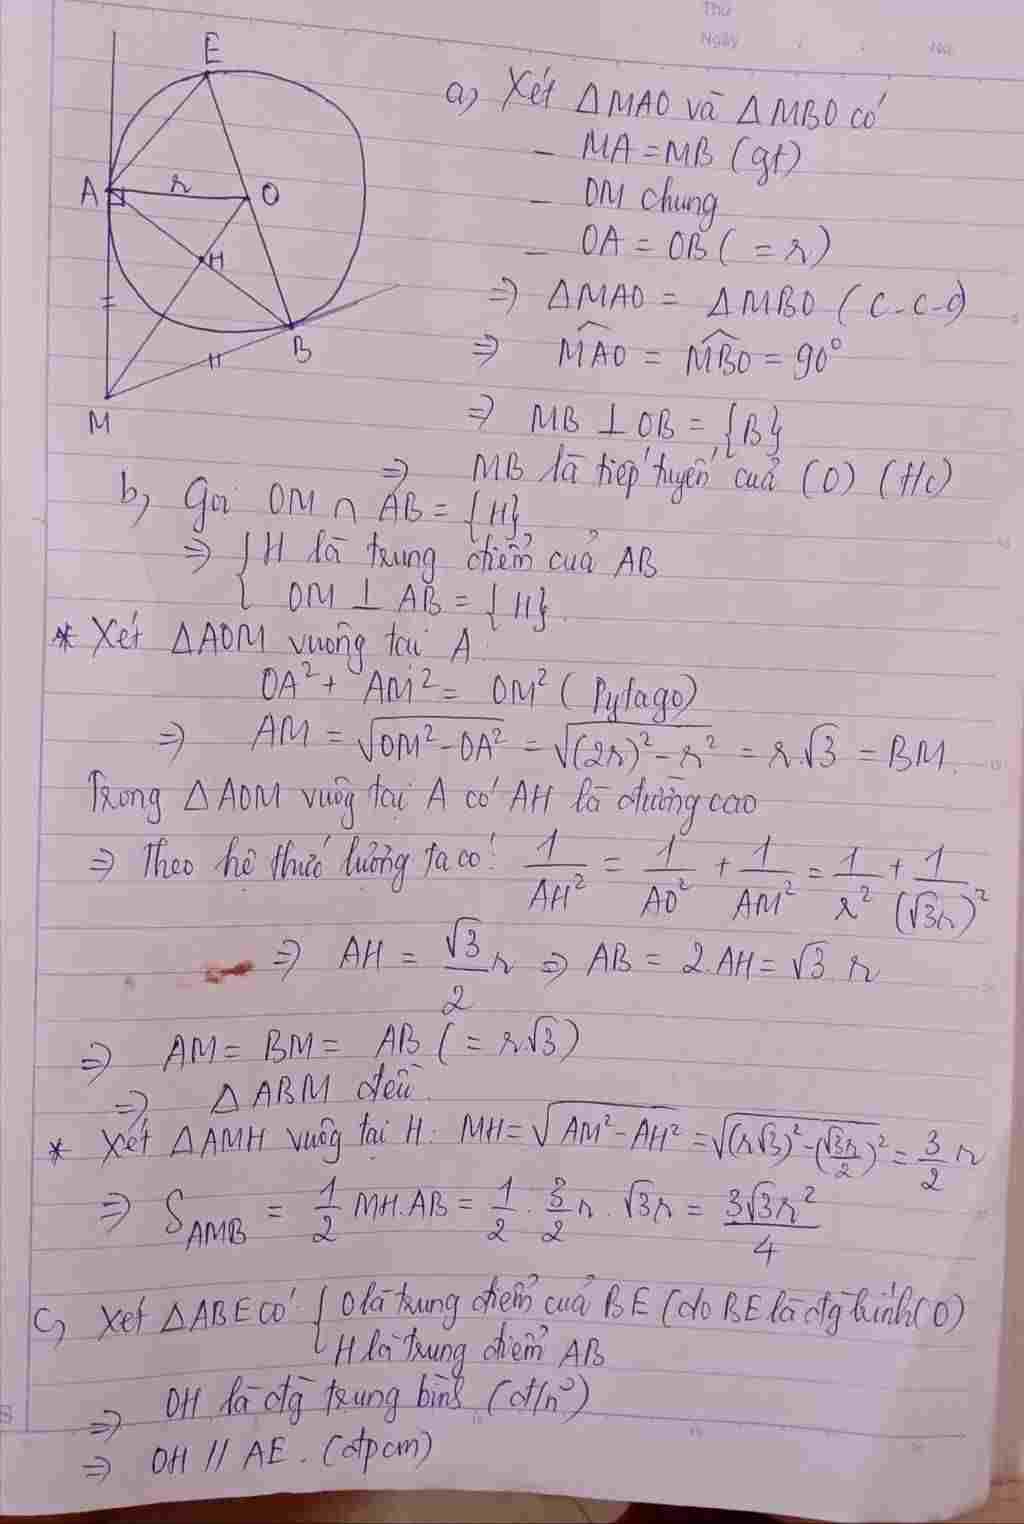 Thứ
Ngày
No.
E
A
r
O
H
B
M
a, Xét ΔMAO và ΔMBO có
- MA = MB (gt)
- OM chung
- OA = OB ( = r)
⇒ ΔMAO = ΔMBO ( c-c-c)
⇒ \widehat{MAO} = \widehat{MBO} = 90°
⇒ MB ⊥ OB = {B}
⇒ MB là tiếp tuyến của (O) (t/c)
b, Gọi OM ∩ AB = {H}
⇒ { H là trung điểm của AB
OM ⊥ AB = {H}.
* Xét ΔAOM vuông tại A
OA² + AM² = OM² ( Pytago)
⇒ AM = √(OM² - OA²) = √((2r)² - r²) = r.√3 = BM.
Trong ΔAOM vuôg tại A có AH là đường cao
⇒ Theo hệ thức lượng ta có: 1/AH² = 1/AO² + 1/AM² = 1/r² + 1/(√3r)²
⇒ AH = √3/2 r ⇒ AB = 2.AH = √3. r
⇒ AM = BM = AB ( = r√3)
⇒ Δ ABM đều.
* Xét ΔAMH vuôg tại H. MH = √(AM² - AH²) = √((r√3)² - (√3r/2)²) = 3/2 r
⇒ S_AMB = 1/2 MH.AB = 1/2 . 3/2 r. √3r = 3√3r²/4
c, Xét ΔABE có { O là trung điểm của BE (do BE là đg kính (O)
H là trung điểm AB
⇒ OH là đg trung bình (đ/n)
⇒ OH // AE. (đpcm)